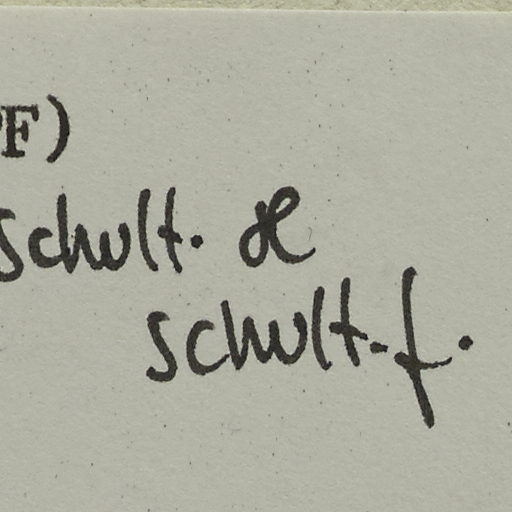 F)
Schult. &
Schult. f.